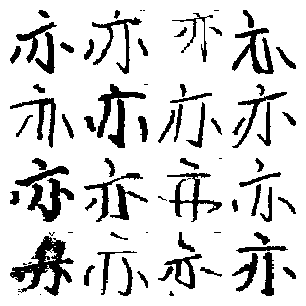 亦亦亦亦
亦亦亦亦
亦亦亦亦
亦亦亦